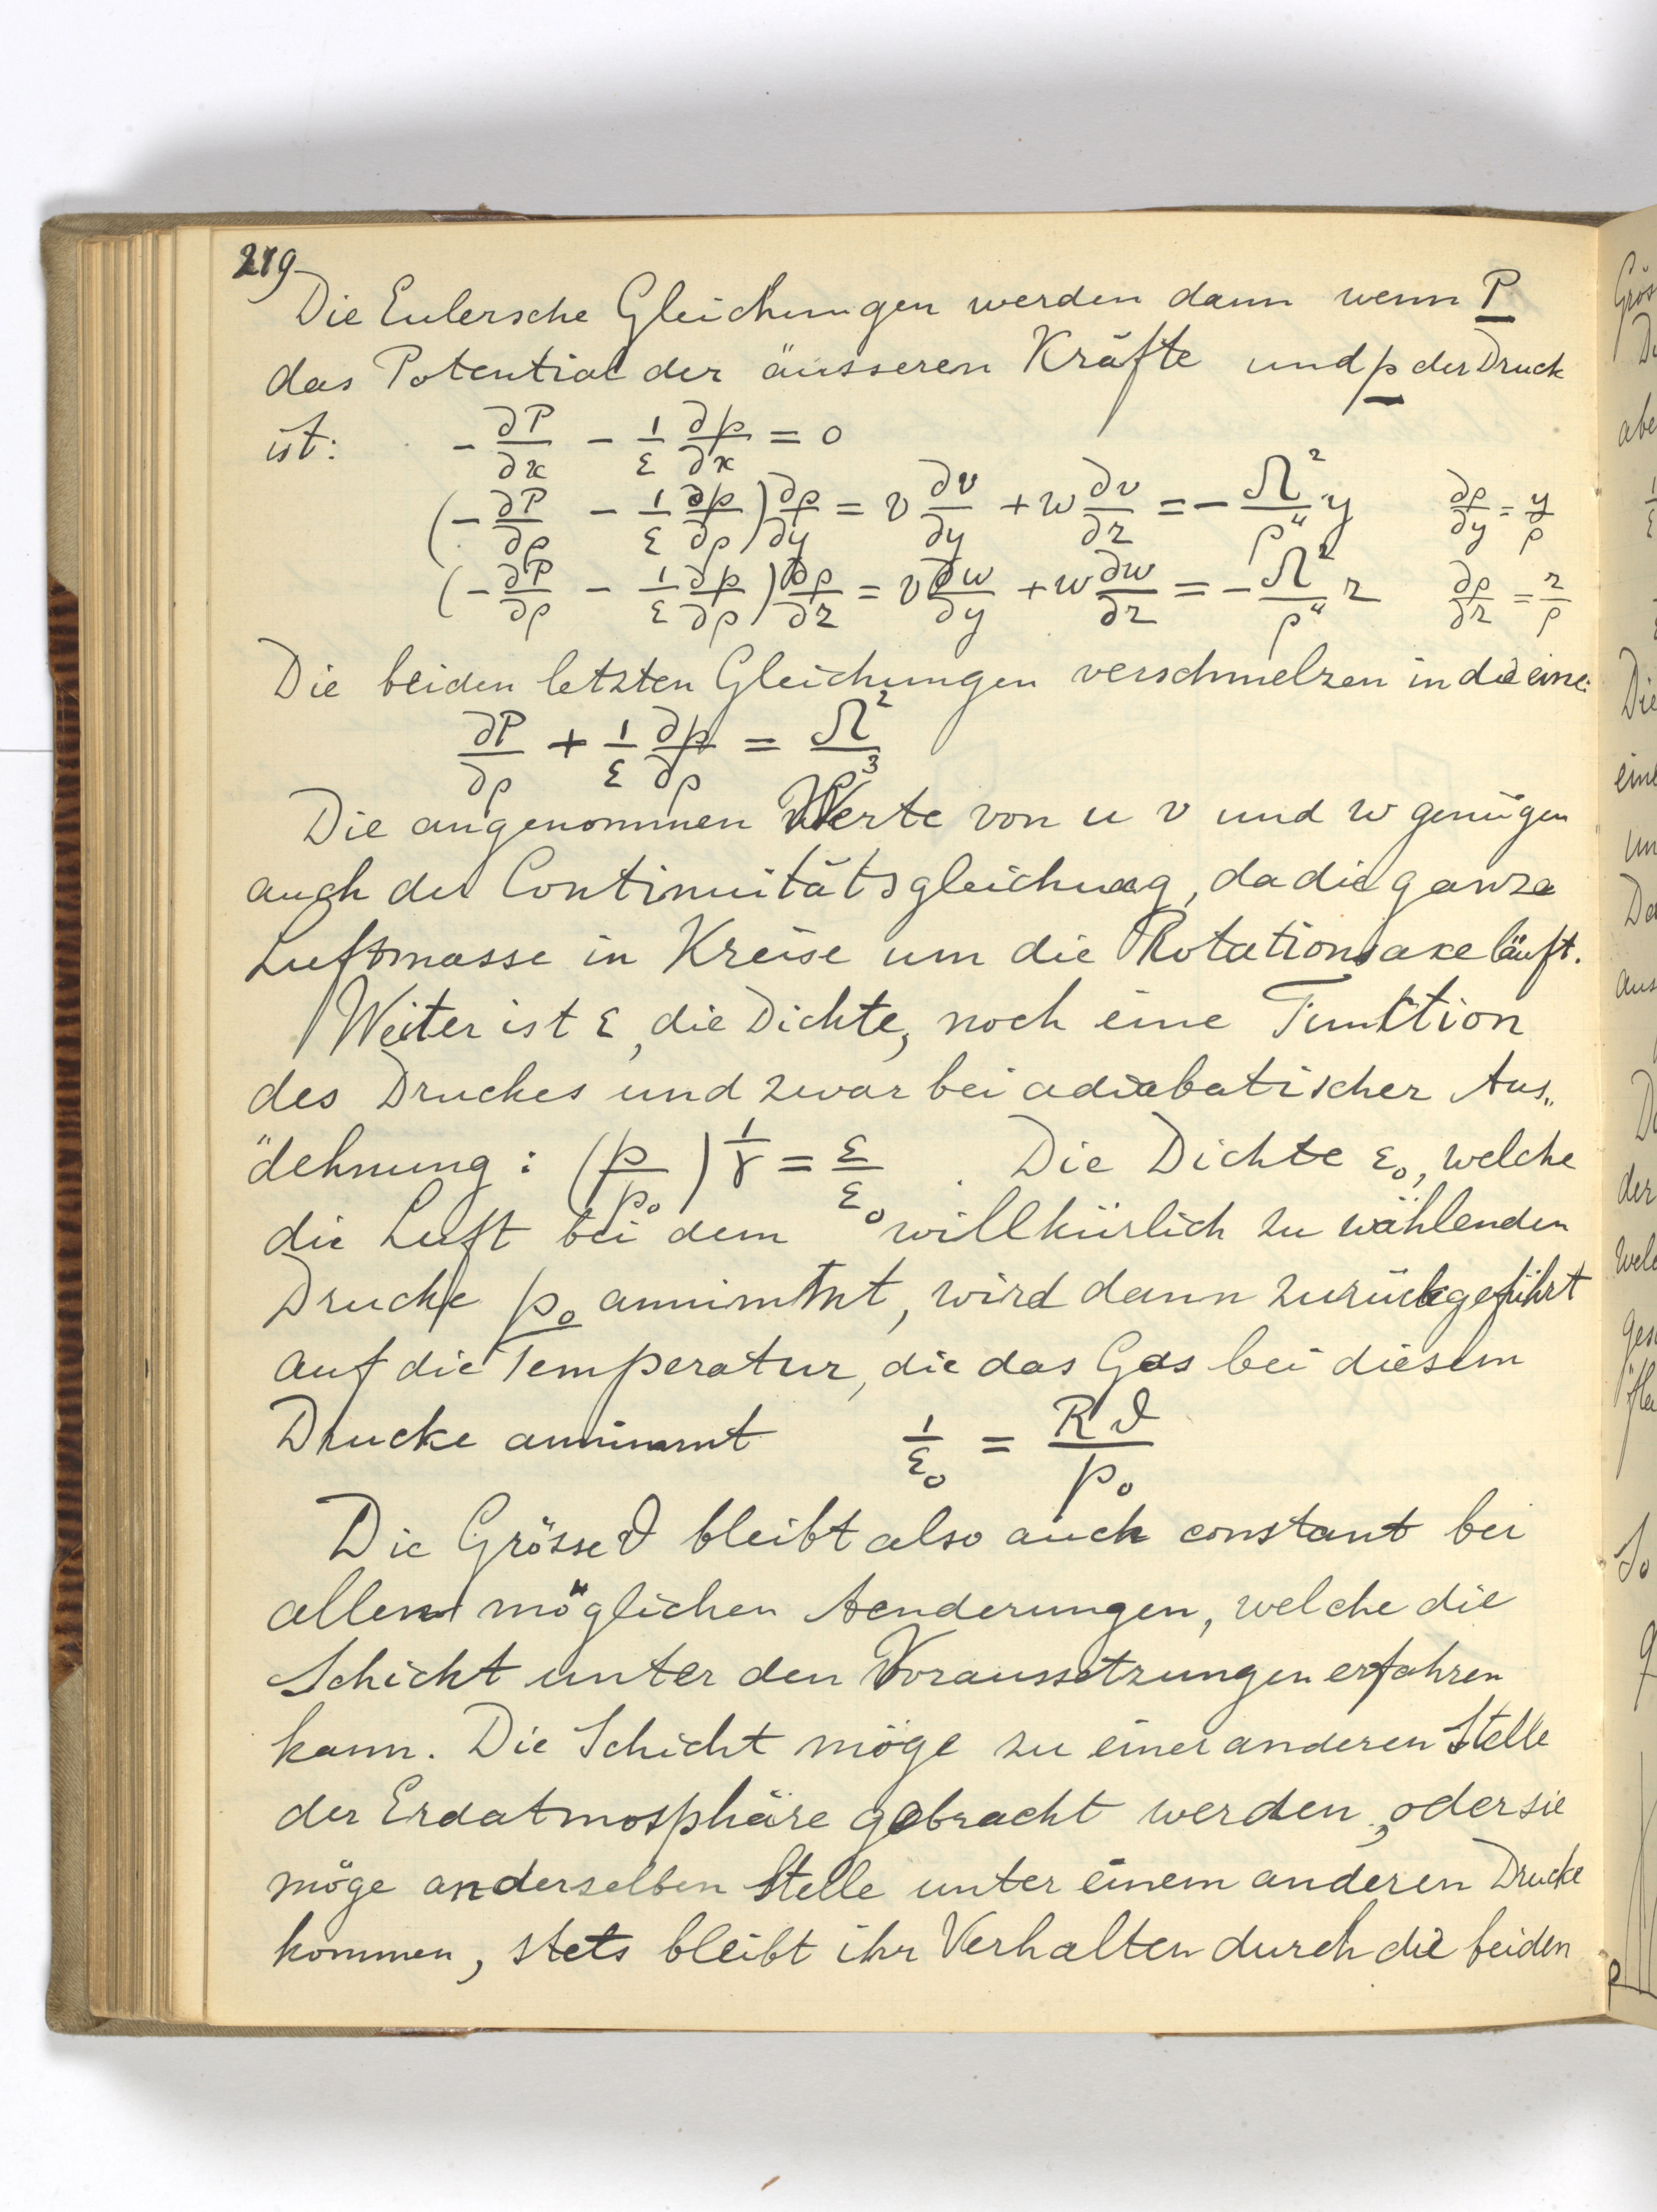 219
Die Eulersche Gleichungen werden dann wenn P
das Potential der äusseren Kräfte und p der Druck
ist: - ∂P/∂x - 1/ε ∂p/∂x = 0
(- ∂P/∂ρ - 1/ε ∂p/∂ρ) ∂ρ/∂y = v ∂v/∂y + w ∂v/∂z = - Ω²/ρ⁴ y ∂ρ/∂y = y/ρ
(- ∂P/∂ρ - 1/ε ∂p/∂ρ) ∂ρ/∂z = v ∂w/∂y + w ∂w/∂z = - Ω²/ρ⁴ z ∂ρ/∂z = z/ρ
Die beiden letzten Gleichungen verschmelzen in die eine:
∂P/∂ρ + 1/ε ∂p/∂ρ = Ω²/ρ³
Die angenommen Werte von u v und w genügen
auch der Continuitätsgleichung, da die ganze
Luftmasse in Kreise um die Rotationsaxe läuft.
Weiter ist ε, die Dichte, noch eine Funktion
des Druckes und zwar bei adiabatischer Aus„
"dehnung: (p/p₀)^1/γ = ε/ε₀. Die Dichte ε₀, welche
die Luft bei dem willkürlich zu wählenden
Drucke p₀ annimmt, wird dann zurückgeführt
auf die Temperatur, die das Gas bei diesem
Drucke annimmt 1/ε₀ = Rϑ/p₀
Die Grösse ϑ bleibt also auch constant bei
allen möglichen Aenderungen, welche die
Schicht unter den Voraussetzungen erfahren
kann. Die Schicht möge zu einer anderen Stelle
der Erdatmosphäre gebracht werden, oder sie
möge an derselben Stelle unter einem anderen Drucke
kommen, stets bleibt ihr Verhalten durch die beiden